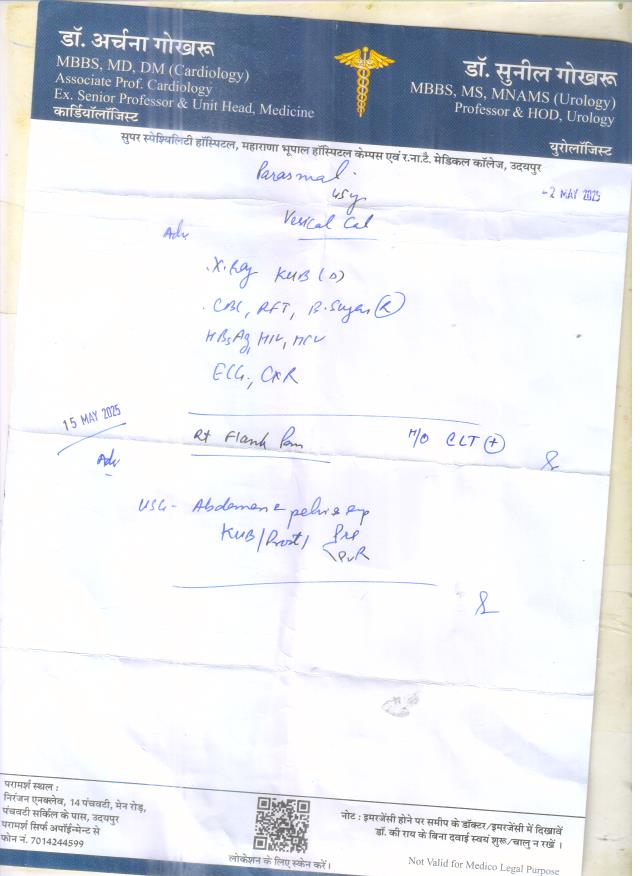 डॉ. अर्चना गोखरू
MBBS, MD, DM (Cardiology)
Associate Prof. Cardiology
Ex. Senior Professor & Unit Head, Medicine
कार्डियॉलॉजिस्ट
डॉ. सुनील गोखरू
MBBS, MS, MNAMS (Urology)
Professor & HOD, Urology
युरोलॉजिस्ट
सुपर स्पेश्यिलिटी हॉस्पिटल, महाराणा भूपाल हॉस्पिटल केम्पस एवं र.ना.टै. मेडिकल कॉलेज, उदयपुर
Parasmal
45y
- 2 MAY 2025
Vesical Cal
Adv
. X.Ray KUB (D)
. CBC, RFT, B. Sugar (R)
HBsAg, HIV, HCV
ECG, CXR
15 MAY 2025
Rt Flank Pain H/O CLT (+)
Adv
USG - Abdomen & pelvis
KUB/Prost/ Pre
PVR
परामर्श स्थल :
निरंजन एनक्लेव, 14 पंचवटी, मेन रोड़,
पंचवटी सर्किल के पास, उदयपुर
परामर्श सिर्फ अपॉईन्मेन्ट से
फोन नं. 7014244599
लोकेशन के लिए स्केन करें।
नोट : इमरजेंसी होने पर समीप के डॉक्टर/इमरजेंसी में दिखावें
डॉ. की राय के बिना दवाई स्वयं शुरू/चालु न रखें ।
Not Valid for Medico Legal Purpose